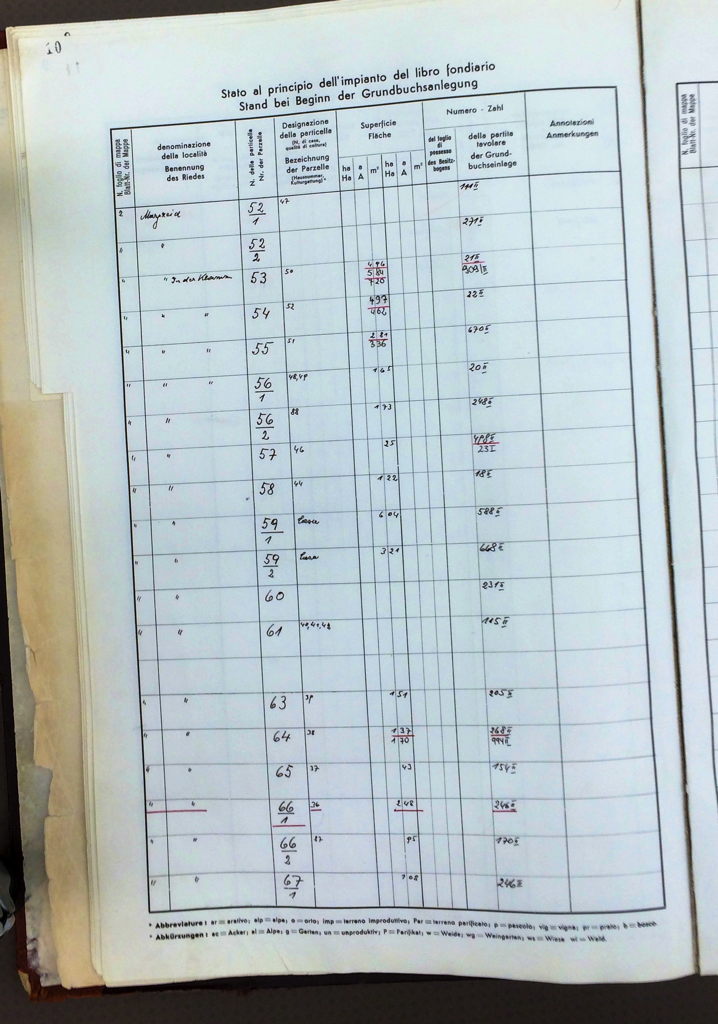 10
Stato al principio dell'impianto del libro fondiario
Stand bei Beginn der Grundbuchsanlegung
N. foglio di mappa
Blatt-Nr. der Mappe
denominazione
della località
Benennung
des Riedes
N. della particella
Nr. der Parzelle
Designazione
della particella
(N. di casa,
qualità di cultura)
Bezeichnung
der Parzelle
(Hausnummer,
Kulturgattung)*
Superficie
Fläche
ha a m² ha a m²
Ha A Ha A
Numero - Zahl
del foglio
di
possesso
des Besitz-
bogens
della partita
tavolare
der Grund-
buchseinlage
Annotazioni
Anmerkungen
N. foglio di mappa
Blatt-Nr. der Mappe
2 52/1 47 111 II
" " 52/2 271 II
" " 53 50 4 96 21 II
5 84 909/II
7 20
" " " 54 52 4 97 22 II
4 62
" " " 55 51 2 81 670 II
3 36
" " " 56/1 48,49 1 65 20 II
" " 56/2 88 1 73 248 II
" " 57 46 25 498 II
23 I
" " 58 44 1 22 18 II
" " 59/1 Casa 6 04 588 II
" " 59/2 Casa 3 21 668 II
" " 60 231 II
" " 61 115 II
" " 63 39 1 51 205 II
" " 64 38 1 37 268 II
1 70 994 II
" " 65 37 43 154 II
" " 66/1 36 2 48 246 II
" " 66/2 27 95 170 II
" " 67/1 1 08 246 II
* Abbreviature: ar = arativo; alp = alpe; o = orto; imp = terreno improduttivo; Par = terreno parificato; p = pascolo; vig = vigna; pr = prato; b = bosco
* Abkürzungen: ac = Acker; al = Alpe; g = Garten; un = unproduktiv; P = Parifikat; w = Weide; wg = Weingarten; ws = Wiese wl = Wald.